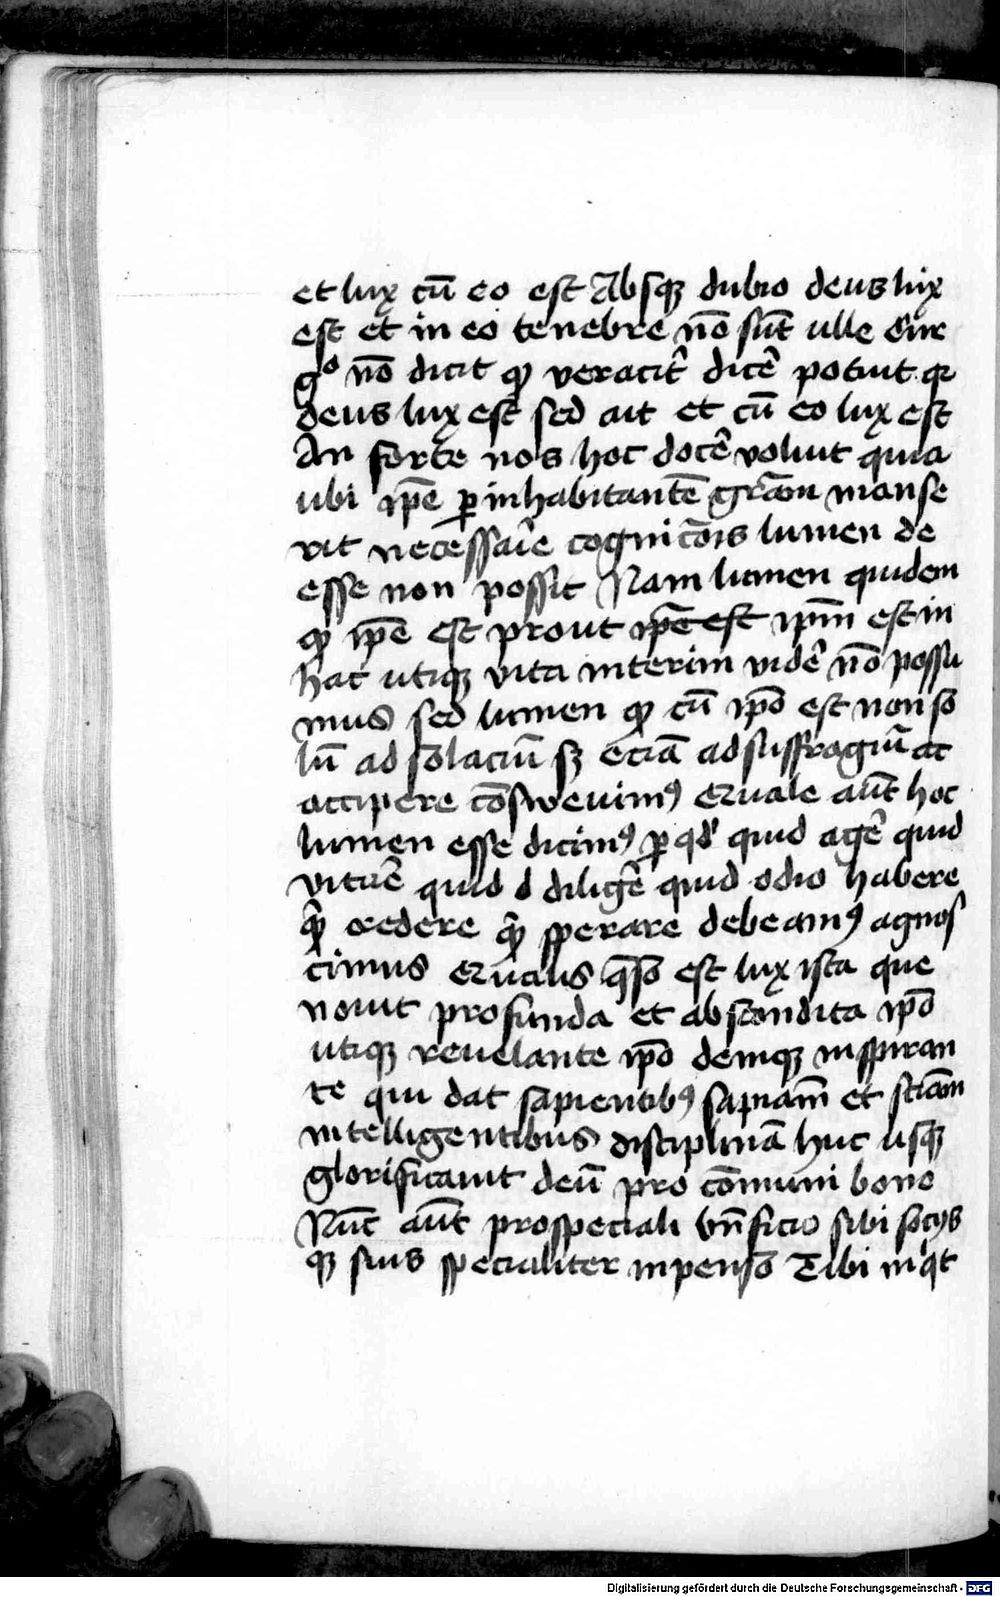 et lux cū eo est Absq̄ dubio deus lux
est et in eo tenebre nō sūt ulle Cur
gº nō dicit qꝫ veracit᷑ dicē potuit qꝛ
deus lux est sed ait et cū eo lux est
An forte nos hoc docē voluit quia
ubi ip̄e ꝑ inhabitantē gr̄am manse
rit necessaīe cognic̄ois lumen de
esse non possit Nam lumen quidem
qꝫ ip̄e est prout ip̄e est ip̄m est in
hac utiqꝫ vita interim vidē nō possu
mus sed lumen qꝫ cū ip̄o est non so
lū ad solaciū sꝫ eciā ad suffragiū ac
accipere cōswevimꝰ Ezuale aūt hoc
lumen esse dicimꝰ ꝑ qd' quid agē quid
vitāē quid d diligē quid odio habere
q̄ꝫ credere q̄ꝫ sperare debeamꝰ agnos
cimus Ezualis q̄so est lux ista que
novit profunda et abscondita ip̄o
utiqꝫ revelante ip̄o deniqꝫ inspiran
te qui dat sapientibꝰ sapnām et sciām
intelligentibus disciplinā huc usqꝫ
glorificavit deū pro cōmuni bono
Nūc aūt pro speciali bn̄ficio sibi socijs
qꝫ suis specialiter inpenso Tibi inq̇t
Digitalisierung gefördert durch die Deutsche Forschungsgemeinschaft - DFG